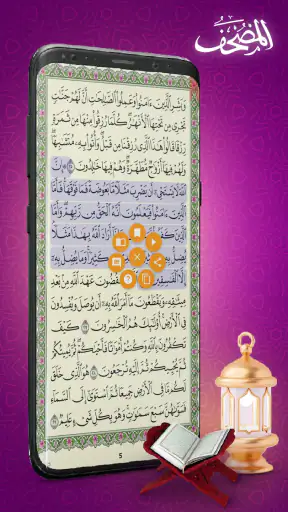 المصحف
وَبَشِّرِ الَّذِينَ ءَامَنُوا وَعَمِلُوا الصَّٰلِحَٰتِ أَنَّ لَهُمْ جَنَّٰتٍ
تَجْرِى مِن تَحْتِهَا الْأَنْهَٰرُ كُلَّمَا رُزِقُوا مِنْهَا مِن ثَمَرَةٍ
رِّزْقًا قَالُوا هَٰذَا الَّذِى رُزِقْنَا مِن قَبْلُ وَأُتُوا بِهِۦ مُتَشَٰبِهًا
وَلَهُمْ فِيهَآ أَزْوَٰجٌ مُّطَهَّرَةٌ وَهُمْ فِيهَا خَٰلِدُونَ ٢٥ إِنَّ
اللَّهَ لَا يَسْتَحْىِۦٓ أَن يَضْرِبَ مَثَلًا مَّا بَعُوضَةً فَمَا فَوْقَهَا فَأَمَّا
الَّذِينَ ءَامَنُوا فَيَعْلَمُونَ أَنَّهُ الْحَقُّ مِن رَّبِّهِمْ وَأَمَّا
الَّذِينَ كَفَرُوا أَرَادَ اللَّهُ بِهَٰذَا مَثَلًا
يُضِلُّ بِهِۦ كَثِيرًا وَمَا يُضِلُّ بِهِۦٓ
إِلَّا الْفَٰسِقِينَ يَنقُضُونَ عَهْدَ اللَّهِ مِن بَعْدِ
مِيثَٰقِهِۦ وَيَقْطَعُونَ مَآ أَمَرَ اللَّهُ بِهِۦٓ أَن يُوصَلَ وَيُفْسِدُونَ
فِى الْأَرْضِ أُولَٰٓئِكَ هُمُ الْخَٰسِرُونَ ٢٧ كَيْفَ
تَكْفُرُونَ بِاللَّهِ وَكُنتُمْ أَمْوَٰتًا فَأَحْيَٰكُمْ ثُمَّ يُمِيتُكُمْ
ثُمَّ يُحْيِيكُمْ ثُمَّ إِلَيْهِ تُرْجَعُونَ ٢٨ هُوَ الَّذِى خَلَقَ
لَكُم مَّا فِى الْأَرْضِ جَمِيعًا ثُمَّ اسْتَوَىٰٓ إِلَى السَّمَآءِ
فَسَوَّىٰهُنَّ سَبْعَ سَمَٰوَٰتٍ وَهُوَ بِكُلِّ شَىْءٍ عَلِيمٌ ٢٩
5